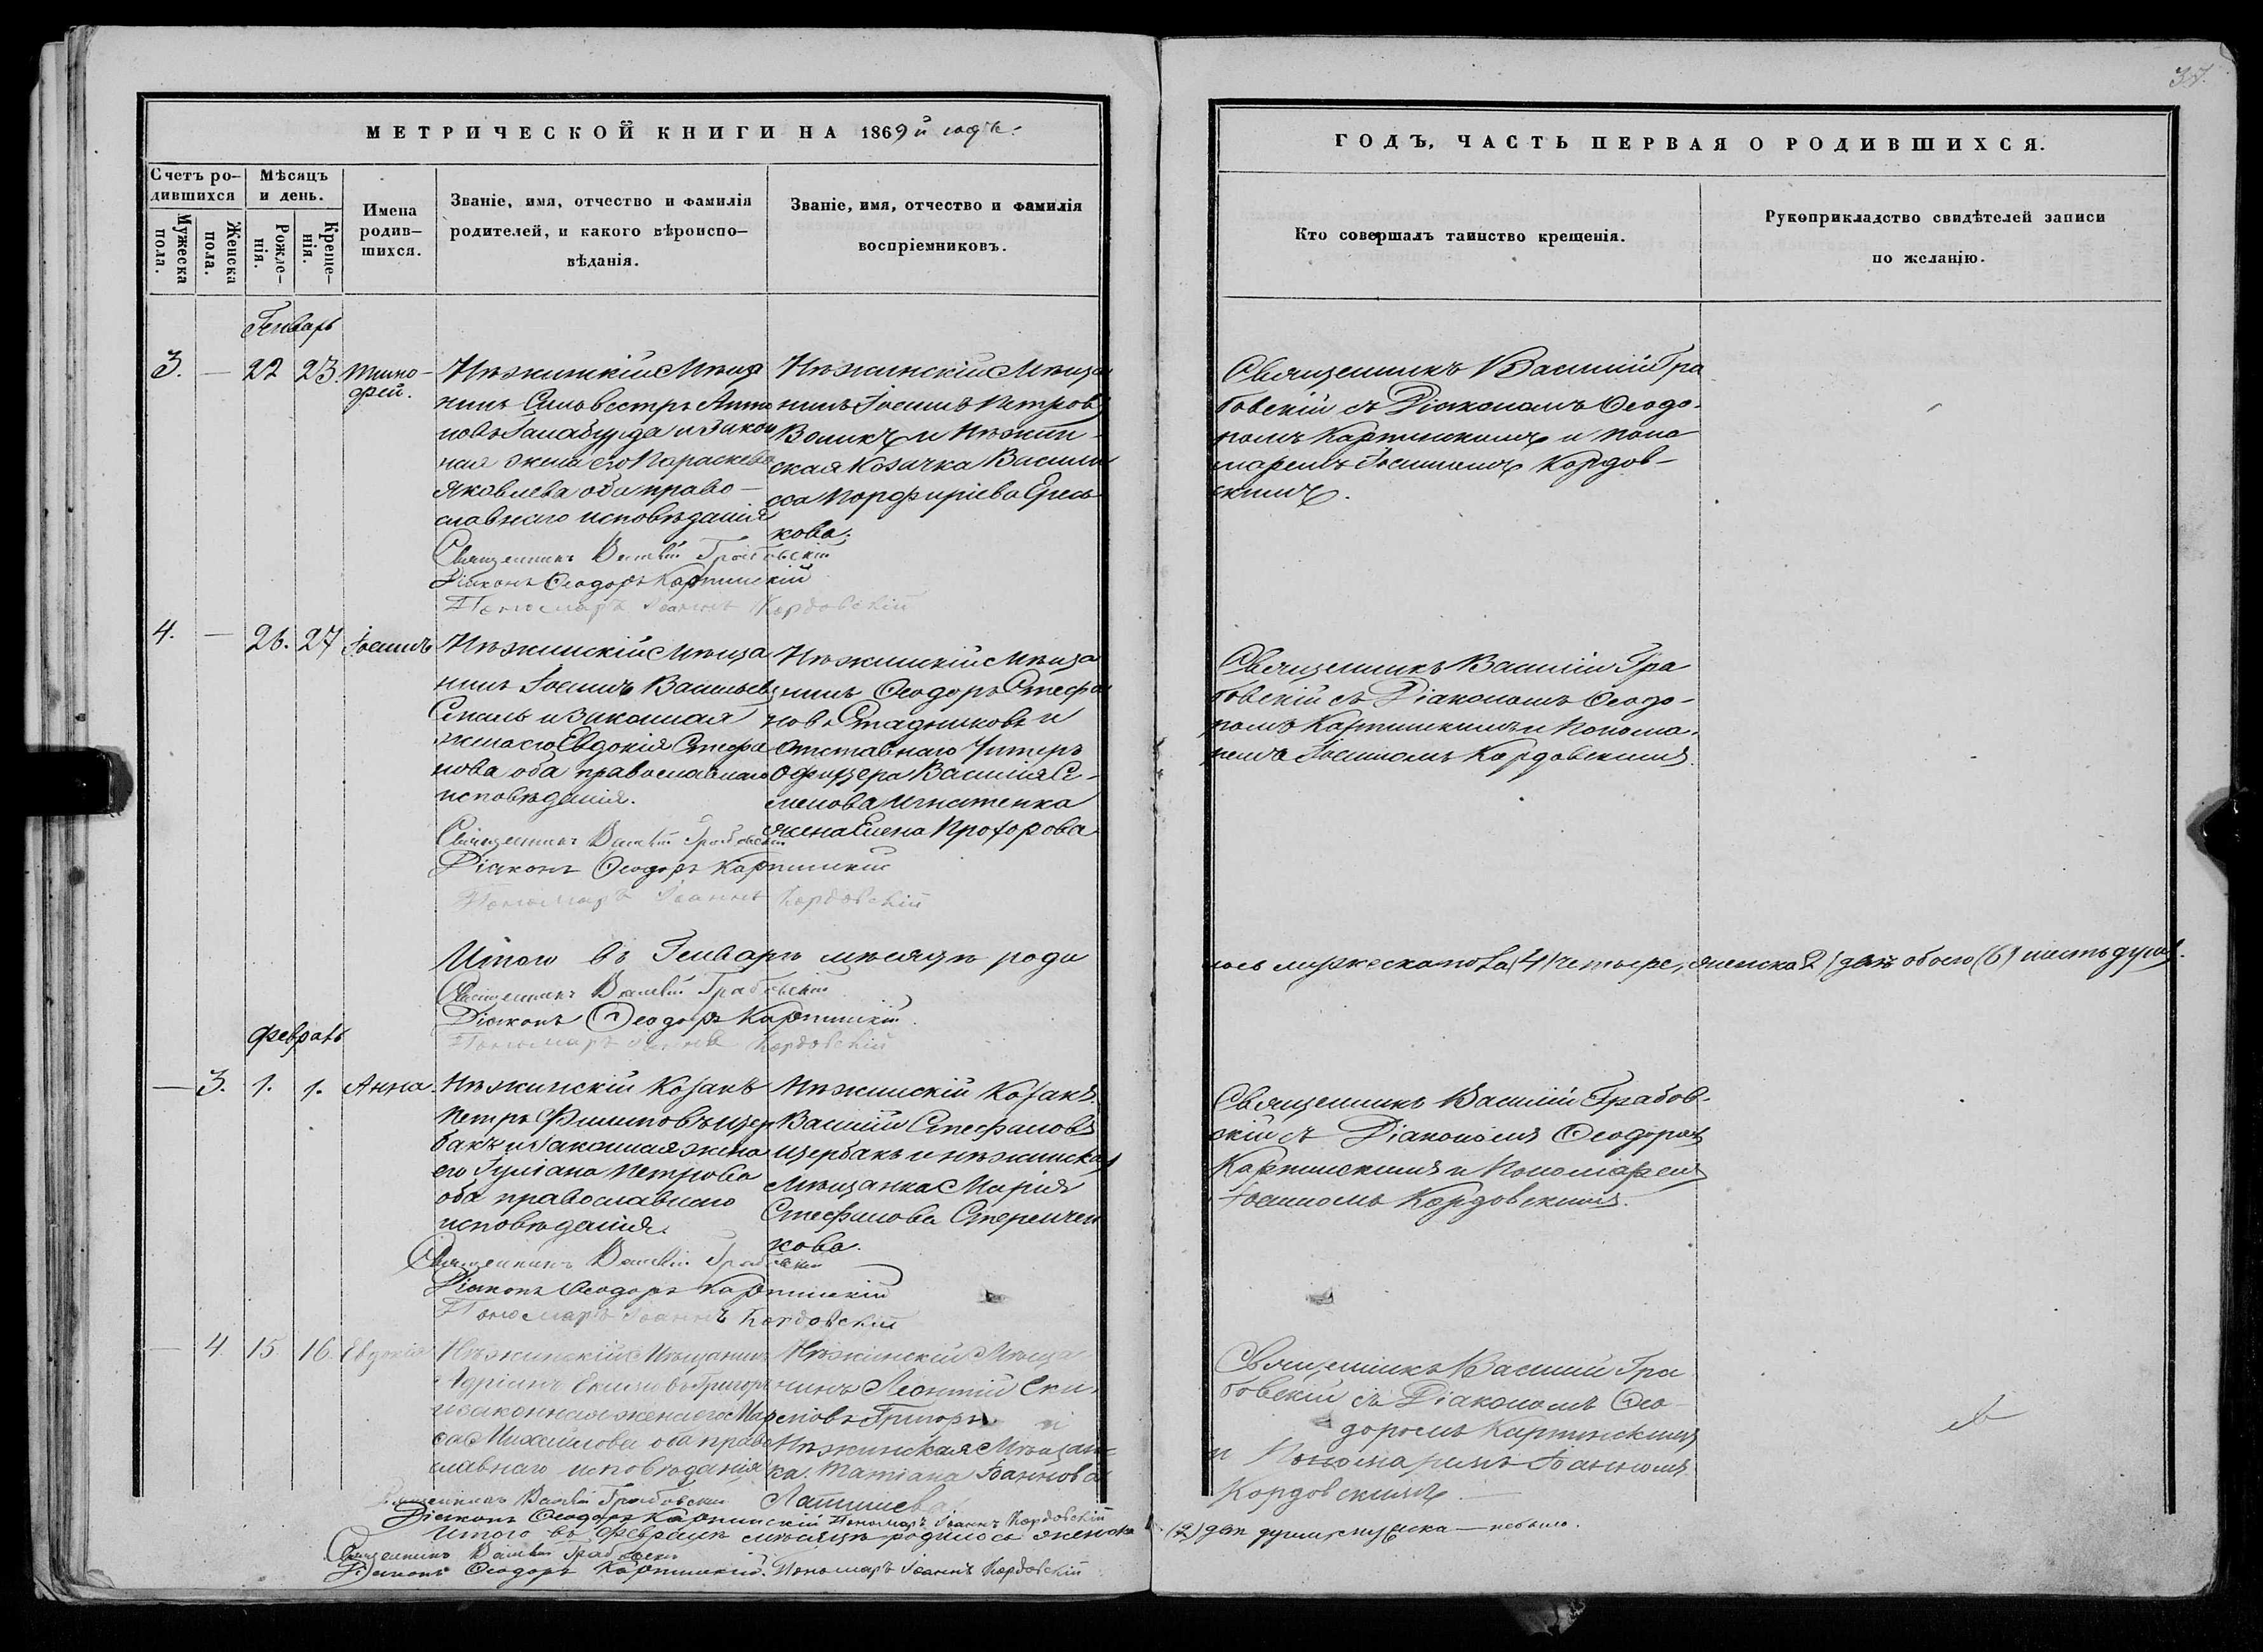 37.
МЕТРИЧЕСКОЙ КНИГИ НА 1869й годъ.
ГОДЪ, ЧАСТЬ ПЕРВАЯ О РОДИВШИХСЯ.
Счетъ ро-
дившихся
Мужеска
пола.
Женска
пола.
Мѣсяцъ
и день.
Рожде-
нія.
Креще-
нія.
Имена
родив-
шихся.
Званіе, имя, отчество и фамилія
родителей, и какого вѣроиспо-
вѣданія.
Званіе, имя, отчество и фамилія
воспріемниковъ.
Кто совершалъ таинство крещенія.
Рукоприкладство свидѣтелей записи
по желанію.
Генварь
3. — 22 23. Тимо-
фей.
Нѣжинскій Мѣща
нинъ Силовестръ Анто
новъ Галабурда и закон
ная жена его Параскева
Яковлева оба право-
славнаго исповѣданія
Нѣжинскій Мѣща
нинъ Іоаннъ Петровъ
Воликъ и Нѣжин-
ская Козачка Васили
сса Порфиріева Ересь
кова.
Священникъ Василій Гра
бовскій съ Діакономъ Ѳеодо-
ромъ Карпинскимъ и Поно
маремъ Іоанномъ Кордов-
скимъ.
Священникъ Василій Грабовскій
Діаконъ Ѳеодоръ Карпинскій
Пономарь Іоаннъ Кордовскій
4. — 26. 27 Іоаннъ
Нѣжинскій Мѣща
нинъ Іоаннъ Васильевъ
и законная
жена его Евдокія Стефа
нова оба православнаго
исповѣданія.
Нѣжинскій Мѣща
нинъ Ѳеодоръ Стефа
новъ Стадниковъ и
отставнаго Унтеръ
Офицера Василія Се-
менова Игнатенка
жена Елена Прохорова
Священникъ Василій Гра
бовскій съ Діакономъ Ѳеодо-
ромъ Карпинскимъ и Понома-
ремъ Іоанномъ Кордовскимъ.
Священникъ Василій Грабовскій
Діаконъ Ѳеодоръ Карпинскій
Пономарь Іоаннъ Кордовскій
Итого въ Генварѣ мѣсяцѣ роди
лось мужеска пола (4) четыре, женска 2) двѣ обоего (6) шесть душъ.
Священникъ Василій Грабовскій
Діаконъ Ѳеодоръ Карпинскій.
Пономарь Іоаннъ Кордовскій
Февраль
— 3. 1. 1. Анна.
Нѣжинскій Козакъ
Петръ Филиповъ Щер
бакъ и законная жена
его Іуліана Петрова
оба православнаго
исповѣданія.
Нѣжинскій Козакъ
Василій Стефановъ
Щербакъ и нѣжинская
Мѣщанка Марія
Стефанова Стеренчен
кова.
Священникъ Василій Грабов-
скій съ Діакономъ Ѳеодоромъ
Карпинскимъ и Пономаремъ
Іоанномъ Кордовскимъ.
Священникъ Василій Грабовскій
Діаконъ Ѳеодоръ Карпинскій
Пономарь Іоаннъ Кордовскій
— 4. 15. 16. Евдокія
Нѣжинскій Мѣщанинъ
Адріанъ Екимовъ Григор
и законная жена его
Михайлова оба право
славнаго исповѣданія
Нѣжинскій Мѣща
нинъ Леонтій Еки
мовъ Григор и
Нѣжинская Мѣщан-
ка Татіана Іоаннова
Латишева
Священникъ Василій Гра
бовскій съ Діакономъ Ѳео-
доромъ Карпинскимъ
и Пономаремъ Іоанномъ
Кордовскимъ.
Священникъ Василій Грабовскій
Діаконъ Ѳеодоръ Карпинскій Пономарь Іоаннъ Кордовскій
Итого въ Февралѣ мѣсяцѣ родилось женска
(2) двѣ души, мужеска — небыло.
Священникъ Василій Грабовскій
Діаконъ Ѳеодоръ Карпинскій. Пономарь Іоаннъ Кордовскій